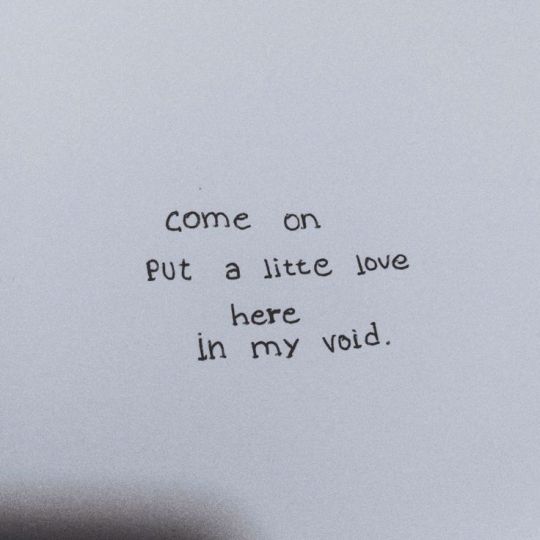 come on
put a litte love
here
in my void.